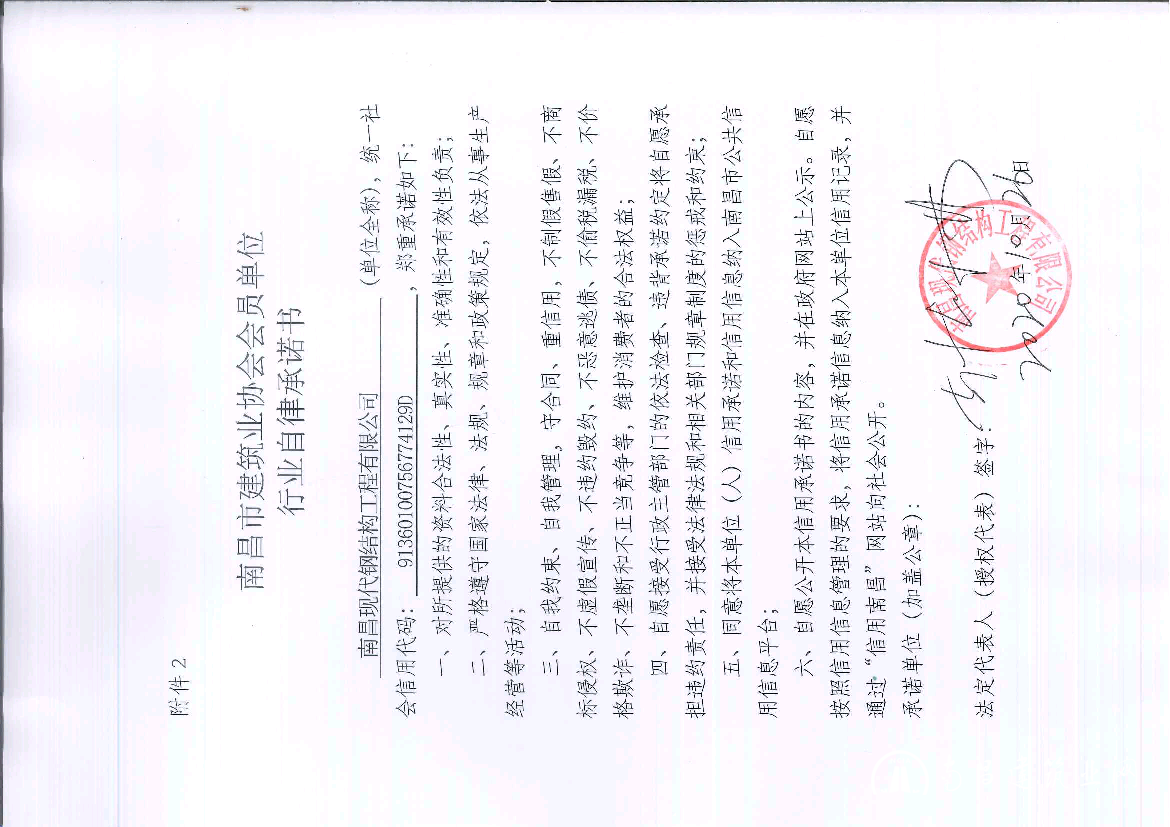 附件 2
南昌市建筑业协会会员单位
行业自律承诺书
南昌现代钢结构工程有限公司（单位全称），统一社
会信用代码：91360100756774129D，郑重承诺如下：
一、对所提供的资料合法性、真实性、准确性和有效性负责；
二、严格遵守国家法律、法规、规章和政策规定，依法从事生产
经营等活动；
三、自我约束、自我管理，守合同、重信用，不制假售假、不商
标侵权、不虚假宣传、不违约毁约、不恶意逃债、不偷税漏税、不价
格欺诈、不垄断和不正当竞争等，维护消费者的合法权益；
四、自愿接受行政主管部门的依法检查、违背承诺约定将自愿承
担违约责任，并接受法律法规和相关部门规章制度的惩戒和约束；
五、同意将本单位（人）信用承诺和信用信息纳入南昌市公共信
用信息平台；
六、自愿公开本信用承诺书的内容，并在政府网站上公示。自愿
按照信用信息管理的要求，将信用承诺信息纳入本单位信用记录，并
通过“信用南昌”网站向社会公开。
承诺单位（加盖公章）：
法定代表人（授权代表）签字：
南昌现代钢结构工程有限公司
2020年10月26日